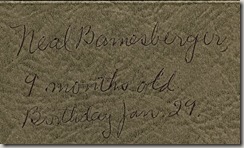 Neal Bamesberger
9 months old
Birthday Jan. 29.